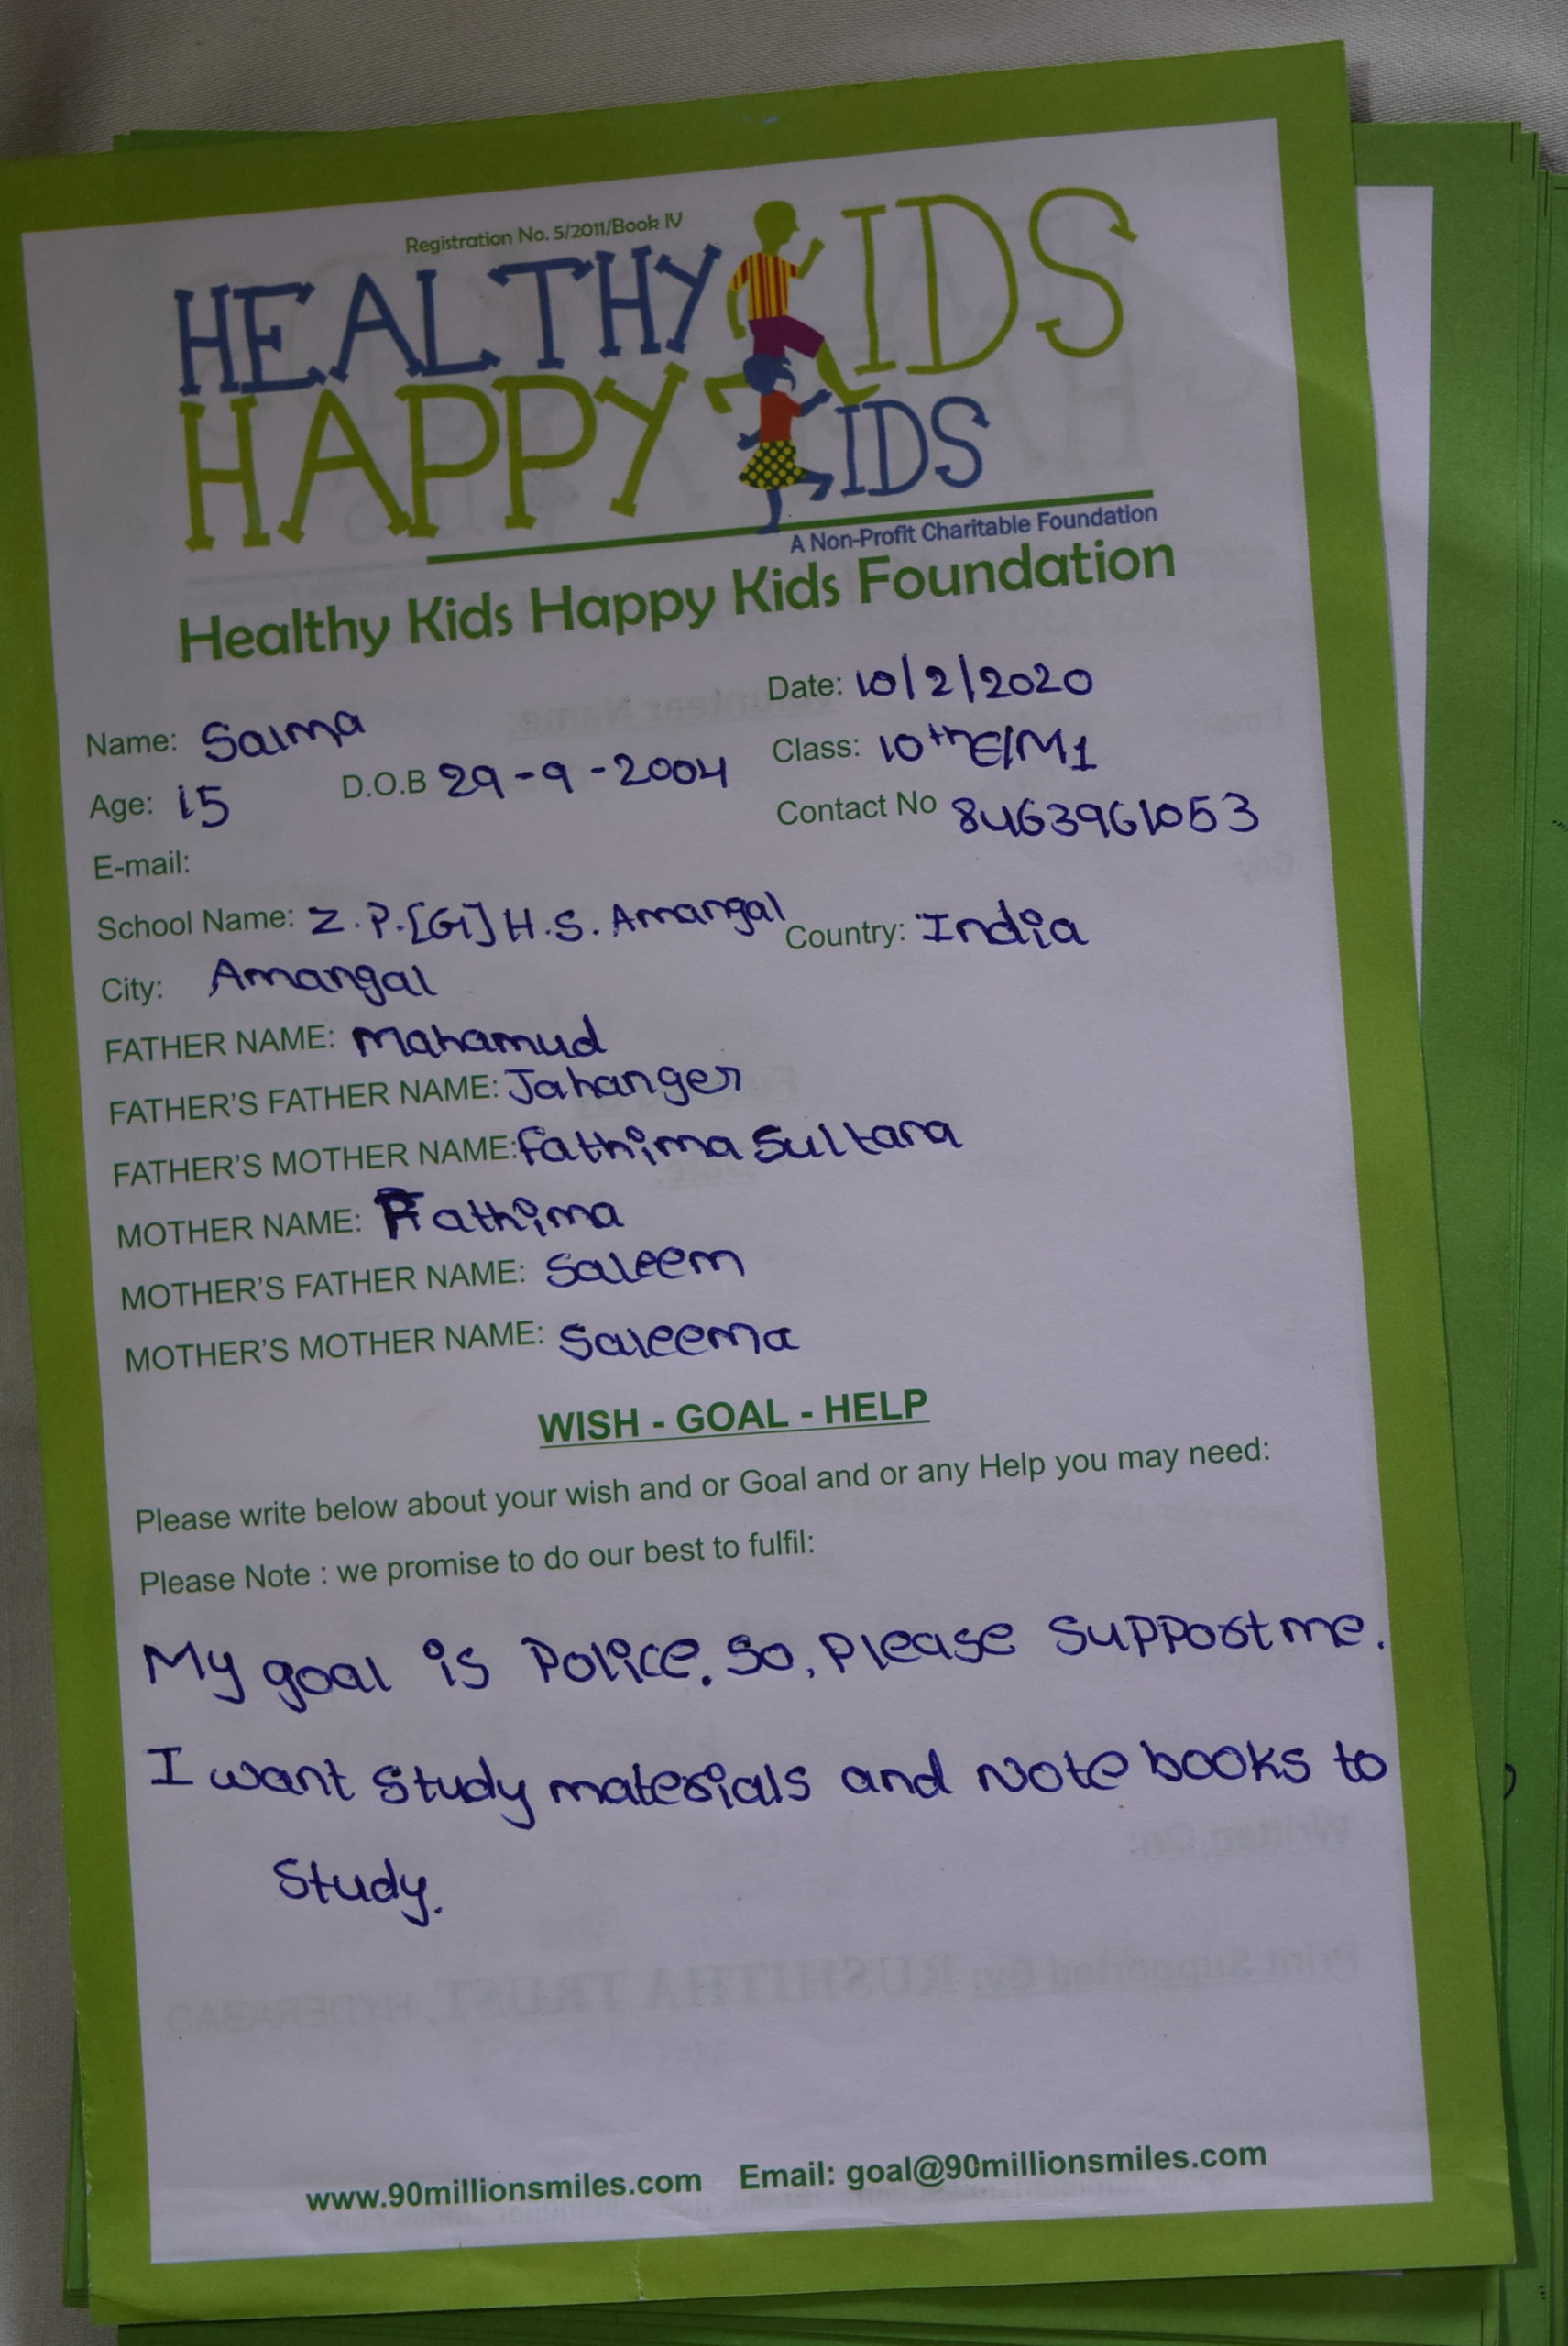 Registration No. 5/2011/Book IV
HEALTHY KIDS
HAPPY KIDS
A Non-Profit Charitable Foundation
Healthy Kids Happy Kids Foundation
Date: 10/2/2020
Name: Salma
Class: 10th E/M1
Age: 15 D.O.B 29-9-2004
Contact No 8463961053
E-mail:
School Name: Z.P.[G] H.S. Amangal
Country: India
City: Amangal
FATHER NAME: Mahamud
FATHER'S FATHER NAME: Jahanger
FATHER'S MOTHER NAME: Fathima Sultana
MOTHER NAME: Fathima
MOTHER'S FATHER NAME: Saleem
MOTHER'S MOTHER NAME: Saleema
WISH - GOAL - HELP
Please write below about your wish and or Goal and or any Help you may need:
Please Note : we promise to do our best to fulfil:
My goal is Police. So, Please Support me.
I want study materials and Note books to
Study.
www.90millionsmiles.com Email: goal@90millionsmiles.com